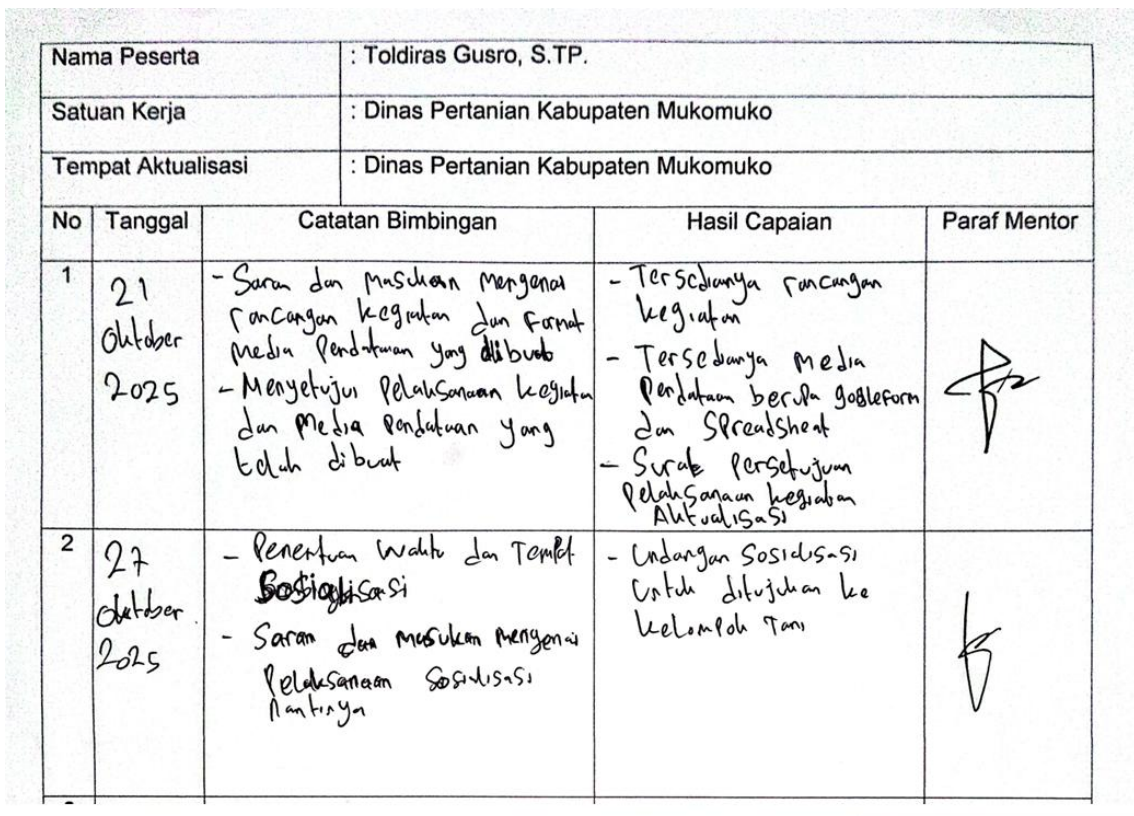 Nama Peserta : Toldiras Gusro, S.TP.
Satuan Kerja : Dinas Pertanian Kabupaten Mukomuko
Tempat Aktualisasi : Dinas Pertanian Kabupaten Mukomuko
No Tanggal Catatan Bimbingan Hasil Capaian Paraf Mentor
1
21
Oktober
2025
- Saran dan masukan mengenai
rancangan kegiatan dan format
media Pendataan yang dibuat
- Menyetujui Pelaksanaan kegiatan
dan media Pendataan yang
telah dibuat
- Tersedianya rancangan
kegiatan
- Tersedianya media
Pendataan berupa googleform
dan Spreadsheat
- Surat Persetujuan
Pelaksanaan kegiatan
Aktualisasi
2
27
oktober
2025
- Penentuan waktu dan Tempat
Sosialisasi
- Saran dan masukan mengenai
Pelaksanaan Sosialisasi
nantinya
- Undangan Sosialisasi
Untuk ditujukan ke
kelompok Tani